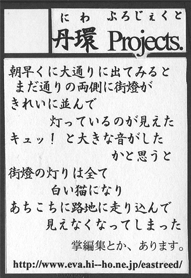 にわ ぷろじぇくと
丹環 Projects.
朝早くに大通りに出てみると
まだ通りの両側に街燈が
きれいに並んで
灯っているのが見えた
キュッ! と大きな音がした
かと思うと
街燈の灯りは全て
白い猫になり
あちこちに路地に走り込んで
見えなくなってしまった
掌編集とか、あります。
http://www.eva.hi-ho.ne.jp/eastreed/